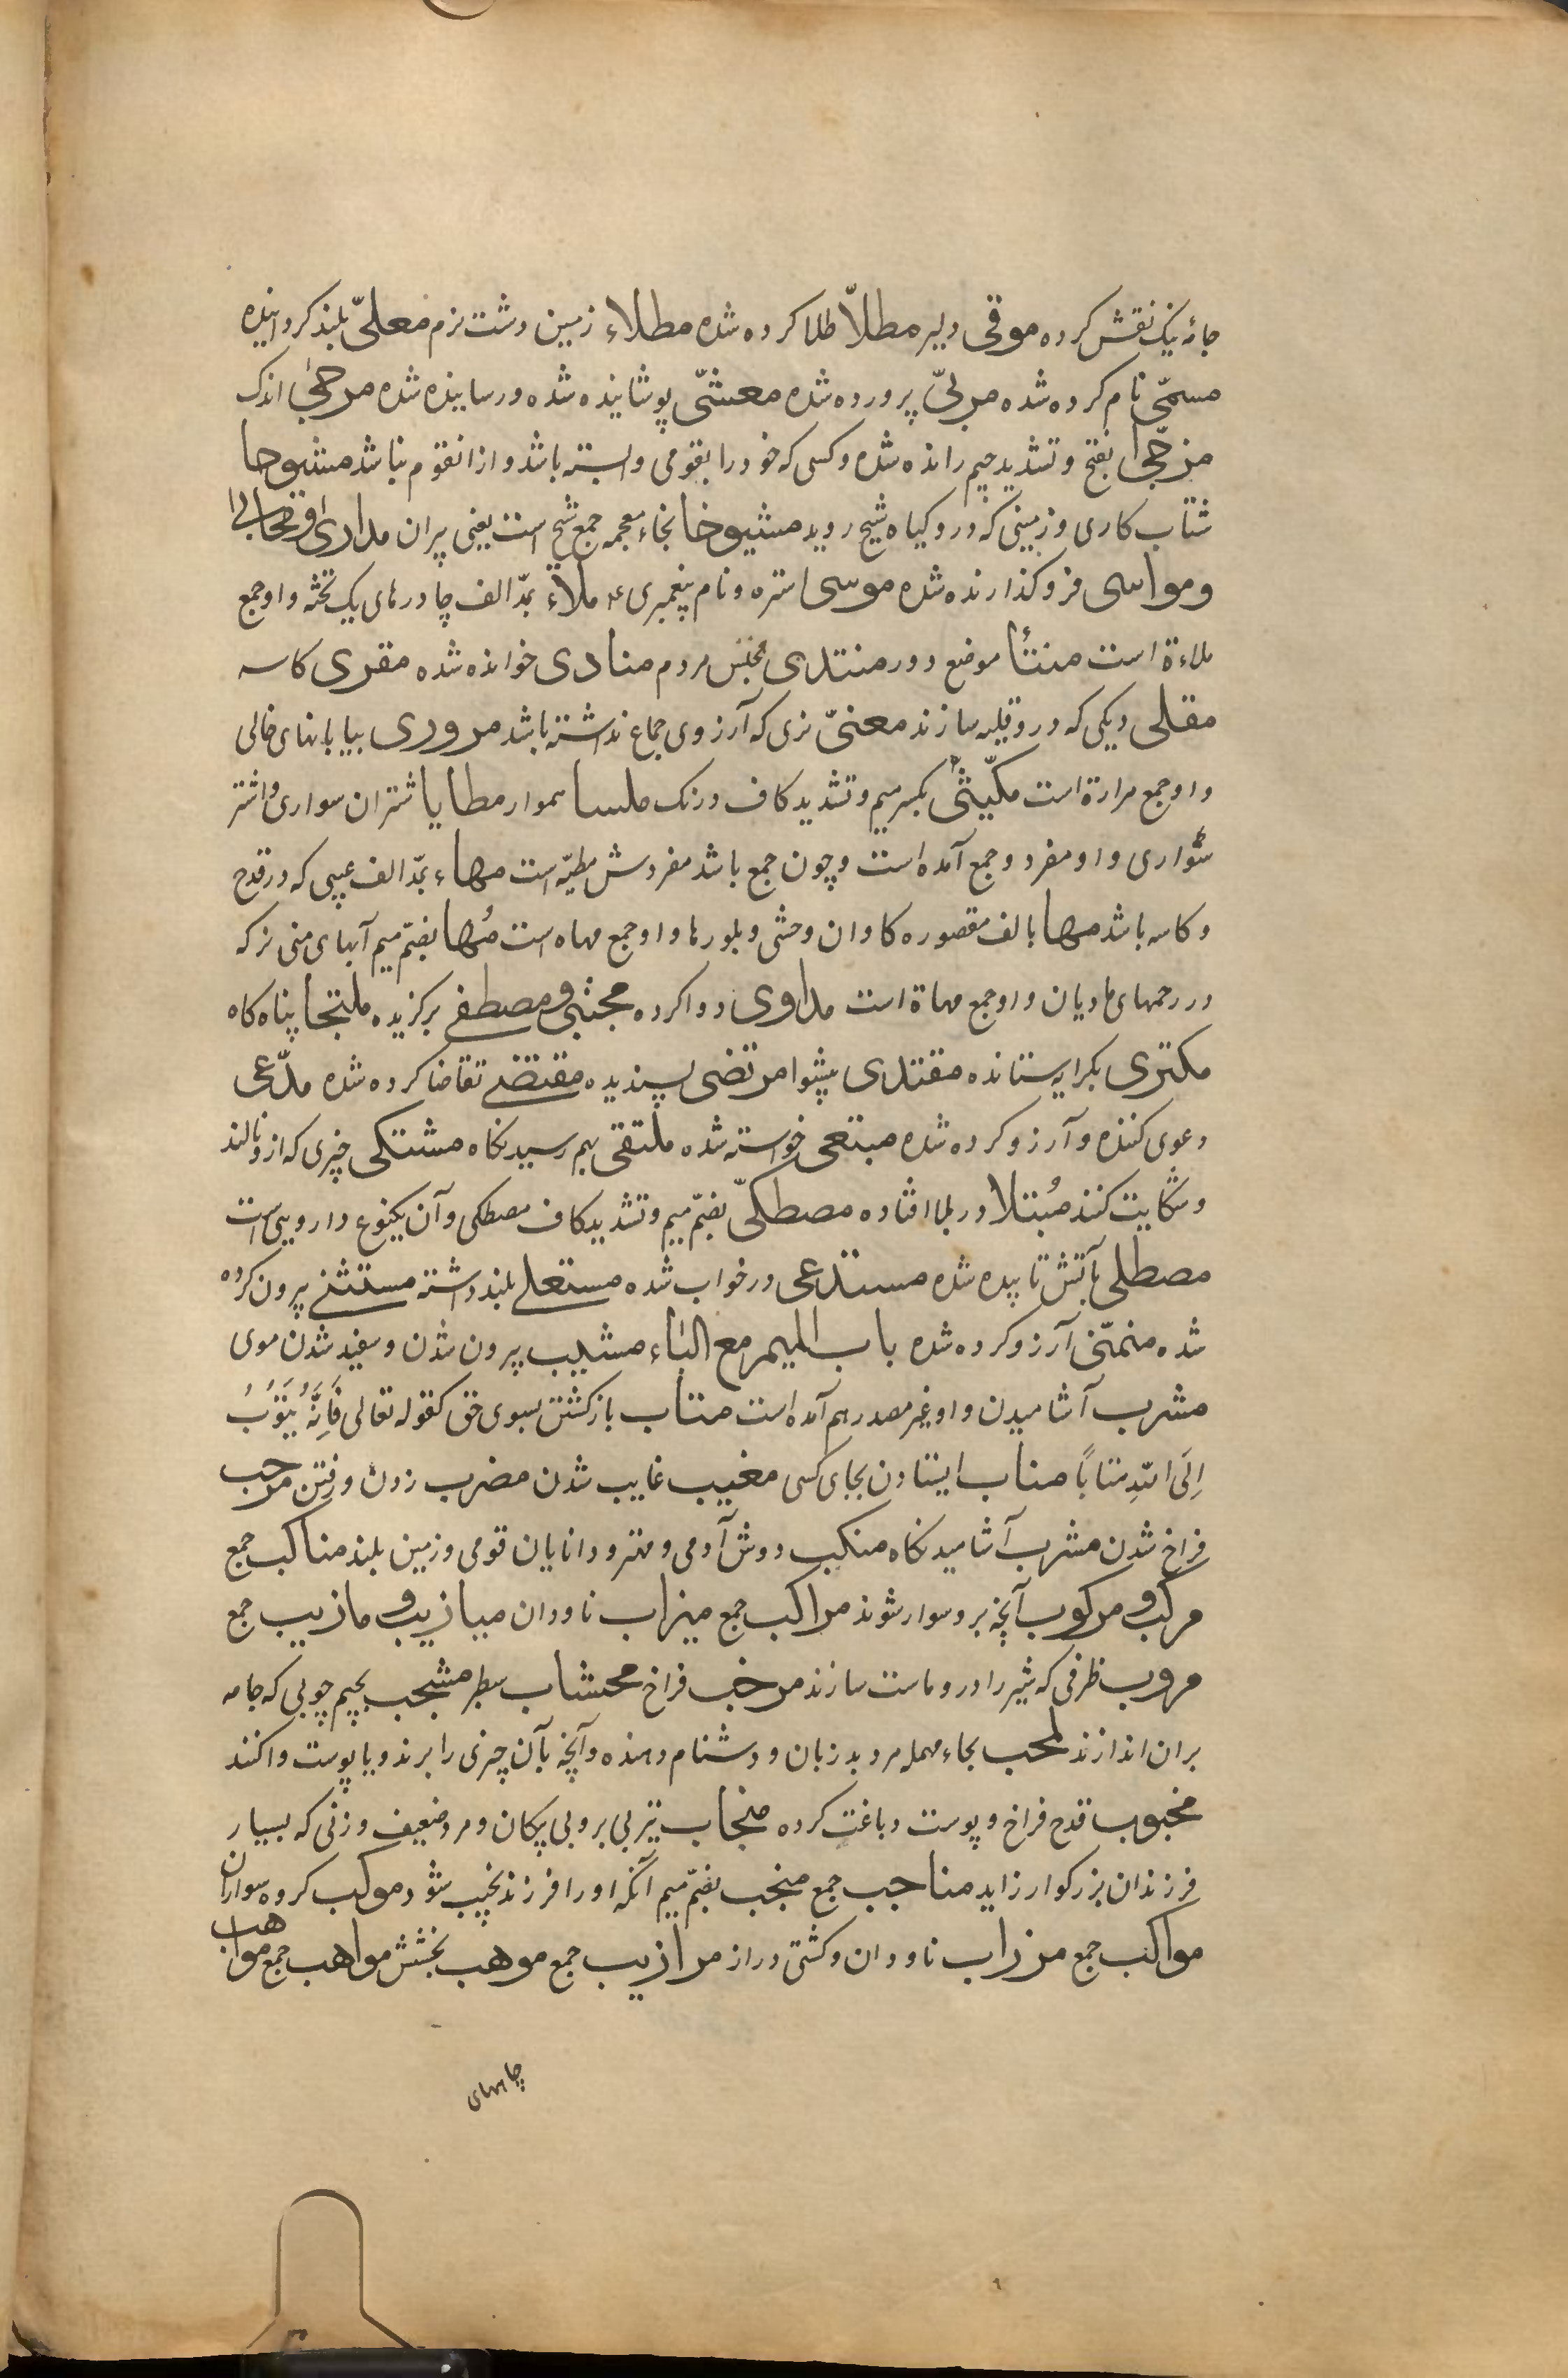 جامۀ نیک نقش کرده موقی دلیر مطلاّ طلا کرده شده مطلاء زمین دشت نرم معلیّ بلند کردانیده
مسمّی نام کرده شده مربیّ پرورده شده معشّی پوشانیده شده و رسانیده شده مرجیٰ اندک
مزجّیٰ بفتح و تشدید جیم رانده شده و کسی که خود را بقومی وابسته باشد و از انقوم نباشد مشیوحا
شتاب کاری و زمینی که درو کیاه شیح روید مشیوخا بخاء معجمه جمع شیخ است یعنی پیران مداری
ومواسی فرو کذارنده شده موسی استره و نام پیغمبری ع ملاٰء بمدّ الف چادرهای یک تخته و او جمع
ملاءة است منتأ موضع دور منتدی مجلس مردم منادی خوانده شده مقری کاسه
مقلی دیکی که درو قلیه سازند معنیّ نری که آرزوی جماع نداشته باشد مروری بیابانهای خالی
و او جمع مرارة است مکّیثی بکسر میم و تشدید کاف درنک ملسا هموار مطایا شتران سواری و اشتر
سواری و او مفرد و جمع آمده است و چون جمع باشد مفردش مطیّه است مهاء بمدّ الف عیبی که در قدح
و کاسه باشد مها بالف مقصوره کاوان وحشی و بلورها و او جمع مهاه است مُها بضمّ میم آبهای منی نر که
در رحمهای مادیان و او جمع مهاة است مداوی دوا کرده مجتبی و مصطفی برکزیده ملتجا پناه کاه
مکتری بکرایه ستانده مقتدی پیشوا مرتضی پسندیده مقتضی تقاضا کرده شده مدّعی
دعوی کننده و آرزو کرده شده مبتغی خواسته شده ملتقی بهم رسیدنکاه مشتکی چیزی که ازو نالند
و شکایت کنند مُبتلا در بلا افتاده مصطکیّ بضمّ میم و تشدید کاف مصطکی و آن یکنوع دارویی است
مصطلی بآتش تابیده شده مستدعی درخواب شده مستعلی بلند داشته مستثنی بیرون کرده
شده متمنّی آرزو کرده شده باب المیم مع الباء مشیب پیرون شدن و سفید شدن موی
مشرب آشامیدن و او غیر مصدر هم آمده است متاب بازکشتن بسوی حق کقوله تعالی فَاِنَّهُ یَتُوبُ
اِلَی اللهِ مَتَابًا مناب ایستادن بجای کسی مغیب غایب شدن مضرب زدن و رفتن مرحب
فراخ شدن مشرب آشامیدنکاه منکب دوش آدمی و مهتر و دانایان قومی و زمین بلند مناکب جمع
مرکب و مرکوب آنچه برو سوار شوند مراکب جمع میزاب ناودان میازیب و مازیب جمع
مروب ظرفی که شیر را درو ماست سازند مرحب فراخ محشاب سطبر مشجب بجیم چوبی که جامه
بران اندازند لمحب بحاء مهمله مرد بد زبان و دشنام دهنده و آنچه بآن چیزی را برند و یا پوست واکنند
مخبوب قدح فراخ و پوست دباغت کرده منجاب تیر بی پر و بی پیکان و مرد ضعیف و زنی که بسیار
فرزندان بزرکوار زاید مناجب جمع منجب بضمّ میم آنکه اورا فرزند نجیب شود موکب کروه سواران
مواکب جمع مرزاب ناودان و کشتی دراز مرازیب جمع موهب بخشش مواهب جمع مواهب
چاههای